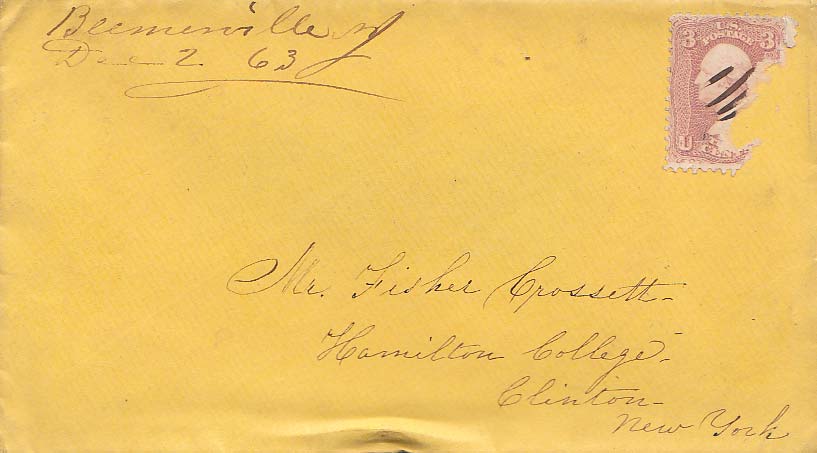 Beemerville NJ
Dec 2 63
U.S.
3 POSTAGE 3
U
Mr. Fisher Crossett
Hamilton College
Clinton
New York